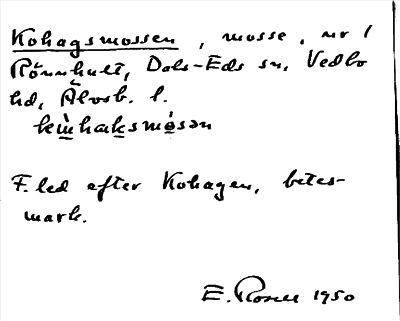 Kohagsmossen, mosse, nr 1
Rönnhult, Dals-Eds sn, Vedbo
hd, Älvsb. l.
F.led efter Kohagen, betes-
mark.
E. 1950